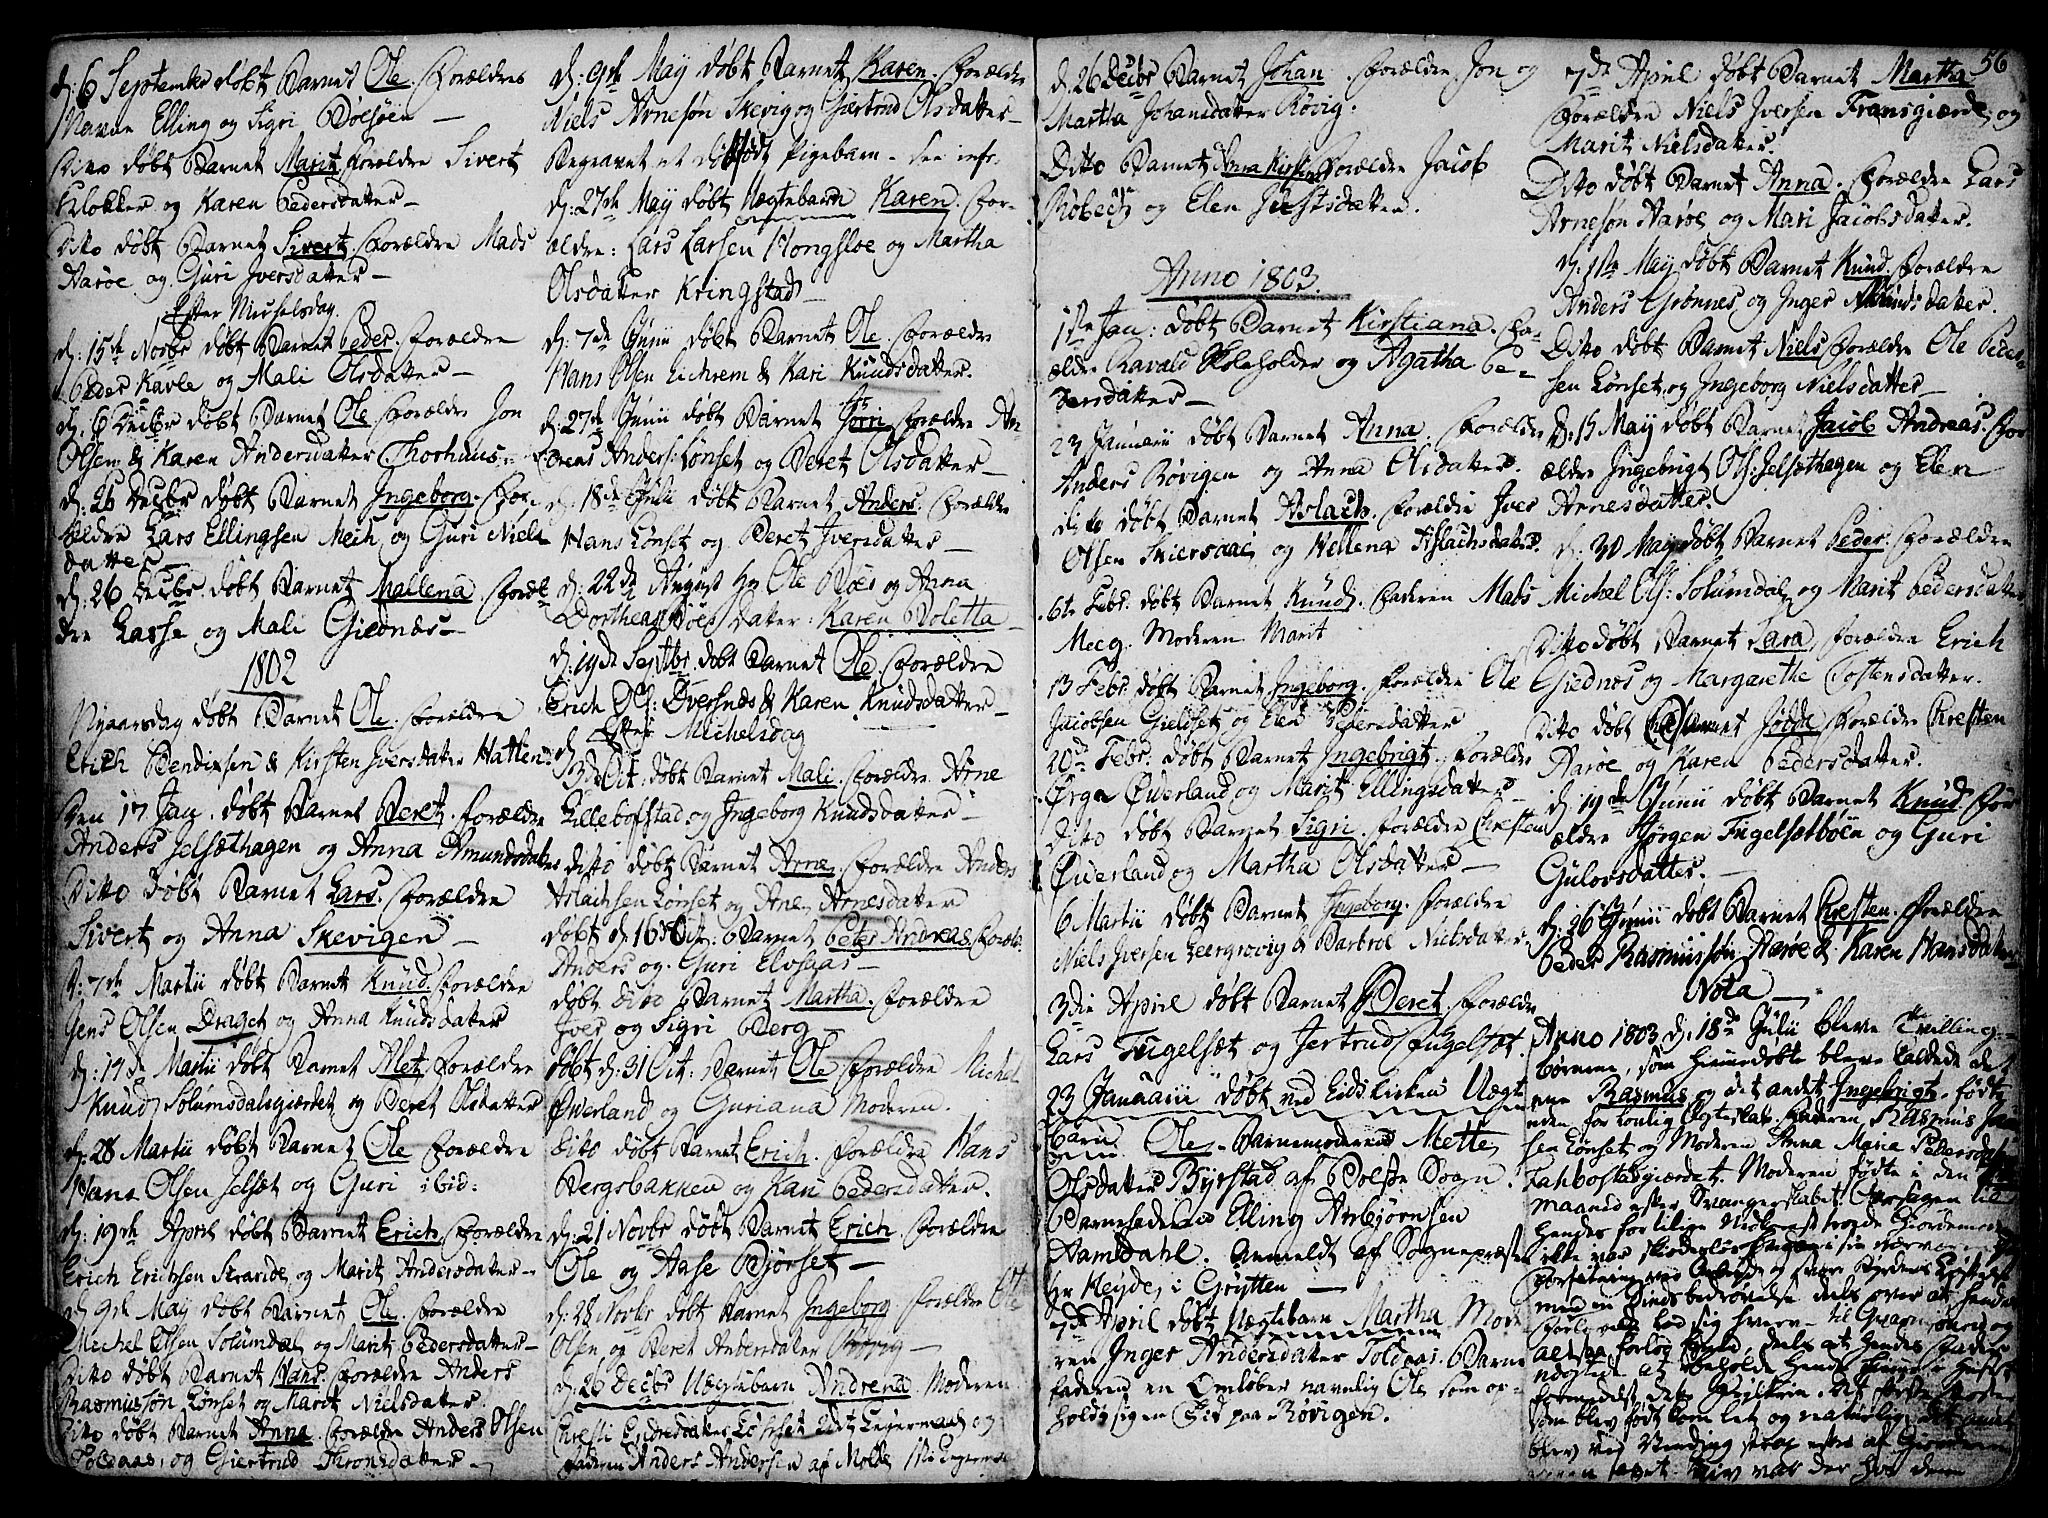 d: 6 September døbt Barnet Ole. Forældre
Elling og Sigri Bolsøen
Dito døbt Barnet Marit. Forældre Sivert
Klokker og Karen Pedersdatter
Dito døbt Barnet Sivert. Forældre Mads
Aarøe og Guri Iversdatter
Efter Michelsdag.
d: 15de Novbr døbt Barnet Peder. Forældre
Peder Kavle og Mali Olsdatter
d. 6 Decbr døbt Barnet Ole. Forældre Jon
Olsen & Karen Andersdatter Thorhuus
d. 26 Decbr døbt Barnet Ingeborg. For-
ældre Lars Ellingsen Mech og Guri Niels
datter
d: 26 Decbr. døbt Barnet Mallena. Foræl-
dre Lasse og Mali Giednæs
1802
Nyaarsdag døbt Barnet Ole. Forældre
Erich Bendixsen & Kirsten Iversdatter Hatlen
Den 17 Jan. døbt Barnet Beret. Forældre
Anders Jelsæthagen og Anna Amundsdatter
Ditto døbt Barnet Lars. Forældre
Sivert og Anna Skevigen
d: 7de Martii døbt Barnet Knud. Forældre
Jens Olsen Draget og Anna Knudsdatter
d: 14de Martii døbt Barnet Alet. Forældre
Knud Solumsdalsgiærdet og Beret Olsdatter
d: 28 Martii døbt Barnet Ole. Forældre
Hans Olsen Jelset og Guri ibid:
d: 19de April døbt Barnet Erich. Forældre
Erich Erichsen Strande og Marit Andersdatter
d: 9de May døbt Barnet Ole. Forældre
Michel Olsen Solumdal og Marit Pedersdatter
Dito døbt Barnet Hans. Forældre Anders
Rasmussøn Lønset og Marit Nielsdatter.
Dito døbt Barnet Anna. Forældre Anders Olsen
Toldaas, og Giertrud Thronsdatter
d: 9de May døbt Barnet Karen. Forældre
Niels Arnesøn Skevig og Giertrud Olsdatter
Begravet et dødfødt Pigebarn - See infr.
d: 27de May døbt Uægtebarn Karen. For-
ældre: Lars Larsen Kongsloe og Martha
Olsdatter Kringstad
d: 7de Junii døbt Barnet Ole. Forældre
Hans Olsen Eichrem & Kari Knudsdatter.
d: 27de Junii døbt Barnet Jørri. Forældre An-
dreas Anders: Lønset og Beret Olsdatter
d: 18de Julii døbt Barnet Anders. Forældre
Hans Lønset og Beret Iversdatter
d: 22de August Hr Ole Boes og Anna
Dorthea Boes Datter: Karen Boletta
d: 19de Septbr. døbt Barnet Ole. Forældre
Erich Ols: Dversnæs & Karen Knudsdatter
Efter Michelsdag
d 3de Oct. døbt Barnet Mali. Forældre Arne
Lillebostad og Ingeborg Knudsdatter
dito døbt Barnet Arne. Forældre Anders
Aslachsen Lønset og Ane Arnesdatter
døbt d: 16de Oct. Barnet Peter Andreas. Foræl:
Anders og Guri Elvsaas
døbt dito Barnet Martha. Forældre
Iver og Sigri Berg
døbt d: 31 Oct: Barnet Ole Forældre Michel
Øverland og Guriana Moderen.
dito døbt Barnet Erich. Forældre Hans
Bergsbakken og Kari Pedersdatter.
d: 21 Novbr døbt Barnet Erich. Forældre
Ole og Aase Bjørset
d: 28 Novbr døbt Barnet Ingeborg. Forældre Ole
Olsen og Beret Andersdatter Røvig
d: 26 Decbr Uægtebarn Andrena. Moderen
Chresti Endresdatter Lønset 2det Leiermaal og
Faderen Anders Andersen af Molde 1ste Leiermaal
d. 26 Decbr Barnet Johan. Forældre Jon og
Martha Johansdatter Røvig.
Ditto Barnet Anna Kirstine Forældre Jacob
Røbech og Elen Justsdatter.
Anno 1803.
1ste Jan: døbt Barnet Kirstiana. For-
ældre Ravald Skoleholder og Agatha Pe-
dersdatter
23 Januarii døbt Barnet Anna. Forældre
Anders Røvigen og Anna Olsdatter.
dito døbt Barnet Aslach. Forældre Iver
Olsen Skiersaae og Hellena Aslachsdatter.
6te Febr. døbt Barnet Knud. Faderen Mats
Meeg. Moderen Marit
13 Febr. døbt Barnet Ingeborg. Forældre Ole
Jacobsen Gieldset og Elen Pedersdatter
20de Febr. døbt Barnet Ingebrigt. Forældre
Ørga Øverland og Marit Ellingsdatter
Dito døbt Barnet Sigri. Forældre Chresten
Øverland og Martha Olsdatter
6 Martii døbt Barnet Ingeborg. Forældre
Niels Iversen Leergrovig & Barbroe Nielsdatter
3die April døbt Barnet Beret. Forældre
Lars Fugelsæt og Jertrud Fugelset.
23 Januarii døbt ved Eids kirken Uægte
barn Ole. Barnemoderen Mette
Olsdatter Byrstad af Bolsøe Sogn.
Barnefaderen Elling Asbjørnsen
Hamsdahl. Anmeldt af Sognepræsten
Hr Heyde i Grytten
7de April døbt Uægtebarn Martha Mode
ren Inger Andersdatter Toldaas. Barne
faderen en Omløber navnlig Ole som op-
holdt sig en Tid paa Røvigen.
56
7de April døbt Barnet Martha
Forældre Niels Iversen Fransgiærde og
Marit Nielsdatter.
Dito døbt Barnet Anna. Forældre Lars
Arnesøn Aarøe og Mari Jacobsdatter.
d: 1ste May døbt Barnet Knud. Forældre
Anders Grønnes og Inger Knudsdatter.
Dito døbt Barnet Niels Forældre Ole Peder-
sen Lønset, og Ingeborg Nielsdatter
d. 15 May døbt Barnet Jacob Andreas. For
ældre Ingebrigt Ols: Jelsæthagen og Elen
Arnesdatter.
d. 30 May døbt Barnet Peder. Forældre
Michel Ols: Solumdal og Marit Pedersdatter
Dito døbt Barnet Sara, Forældre Erich
Giednæs og Margarethe Tostensdatter.
Dito døbt Barnet Jødde, Forældre Chresten
Aarøe og Karen Pedersdatter.
d: 19de Junii døbt Barnet Knud For
ældre Jørgen Fugelsætbøen og Guri
Gulovsdatter.
d: 26 Junii døbt Barnet Chresten. Forældre
Peder Rasmussøn Aarøe & Karen Hansdatter
Nota
Anno 1803 d. 18de Julii bleve Tvilling-
børnene, som hiemmedøbte bleve kaldede det
ene Rasmus og det andet Ingebrigt, fødte
inden for lovlig Ægteskab. Faderen Rasmus
sen Lønset og Moderen Anna Maria Pedersdatter
Fahbostadgiærdet. Moderen fødte i den
maaned efter Svangerskabet. Aarsagen til
hendes for tilige
ikke var
med en Sindsbedrøvelse dels over at hendes